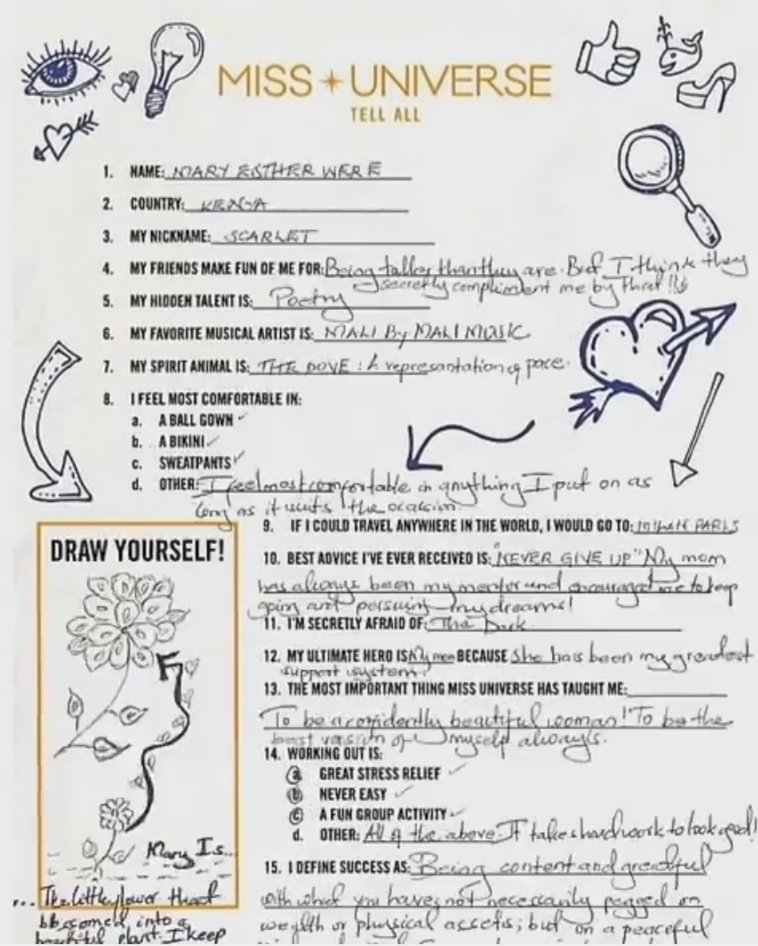 MISS UNIVERSE
TELL ALL
1. NAME: MARY ESTHER WERE
2. COUNTRY: KENYA
3. MY NICKNAME: SCARLET
4. MY FRIENDS MAKE FUN OF ME FOR: Being taller than they are. But I think they
secretly compliment me by that!!
5. MY HIDDEN TALENT IS: Poetry
6. MY FAVORITE MUSICAL ARTIST IS: MALI By MALI MUSIC
7. MY SPIRIT ANIMAL IS: THE DOVE: A representation of peace.
8. I FEEL MOST COMFORTABLE IN:
a. A BALL GOWN
b. A BIKINI
c. SWEATPANTS
d. OTHER: I feel most comfortable in anything I put on as
long as it suits the occasion.
9. IF I COULD TRAVEL ANYWHERE IN THE WORLD, I WOULD GO TO: PARIS
10. BEST ADVICE I'VE EVER RECEIVED IS: "NEVER GIVE UP" My mom
has always been my mentor and encouraged me to keep
going and persuing my dreams!
11. I'M SECRETLY AFRAID OF: The Dark
12. MY ULTIMATE HERO IS My mom BECAUSE She has been my greatest
support system.
13. THE MOST IMPORTANT THING MISS UNIVERSE HAS TAUGHT ME:
To be a confidently beautiful woman! To be the
best version of myself always.
14. WORKING OUT IS:
a GREAT STRESS RELIEF
b NEVER EASY
c A FUN GROUP ACTIVITY
d. OTHER: All of the above. It takes hard work to look good!
15. I DEFINE SUCCESS AS: Being content and greatful
with what you have; not necessarily pegged on
wealth or physical assets; but on a peaceful
DRAW YOURSELF!
Mary Is...
... The little flower that
blossomed into a
beautiful plant. I keep